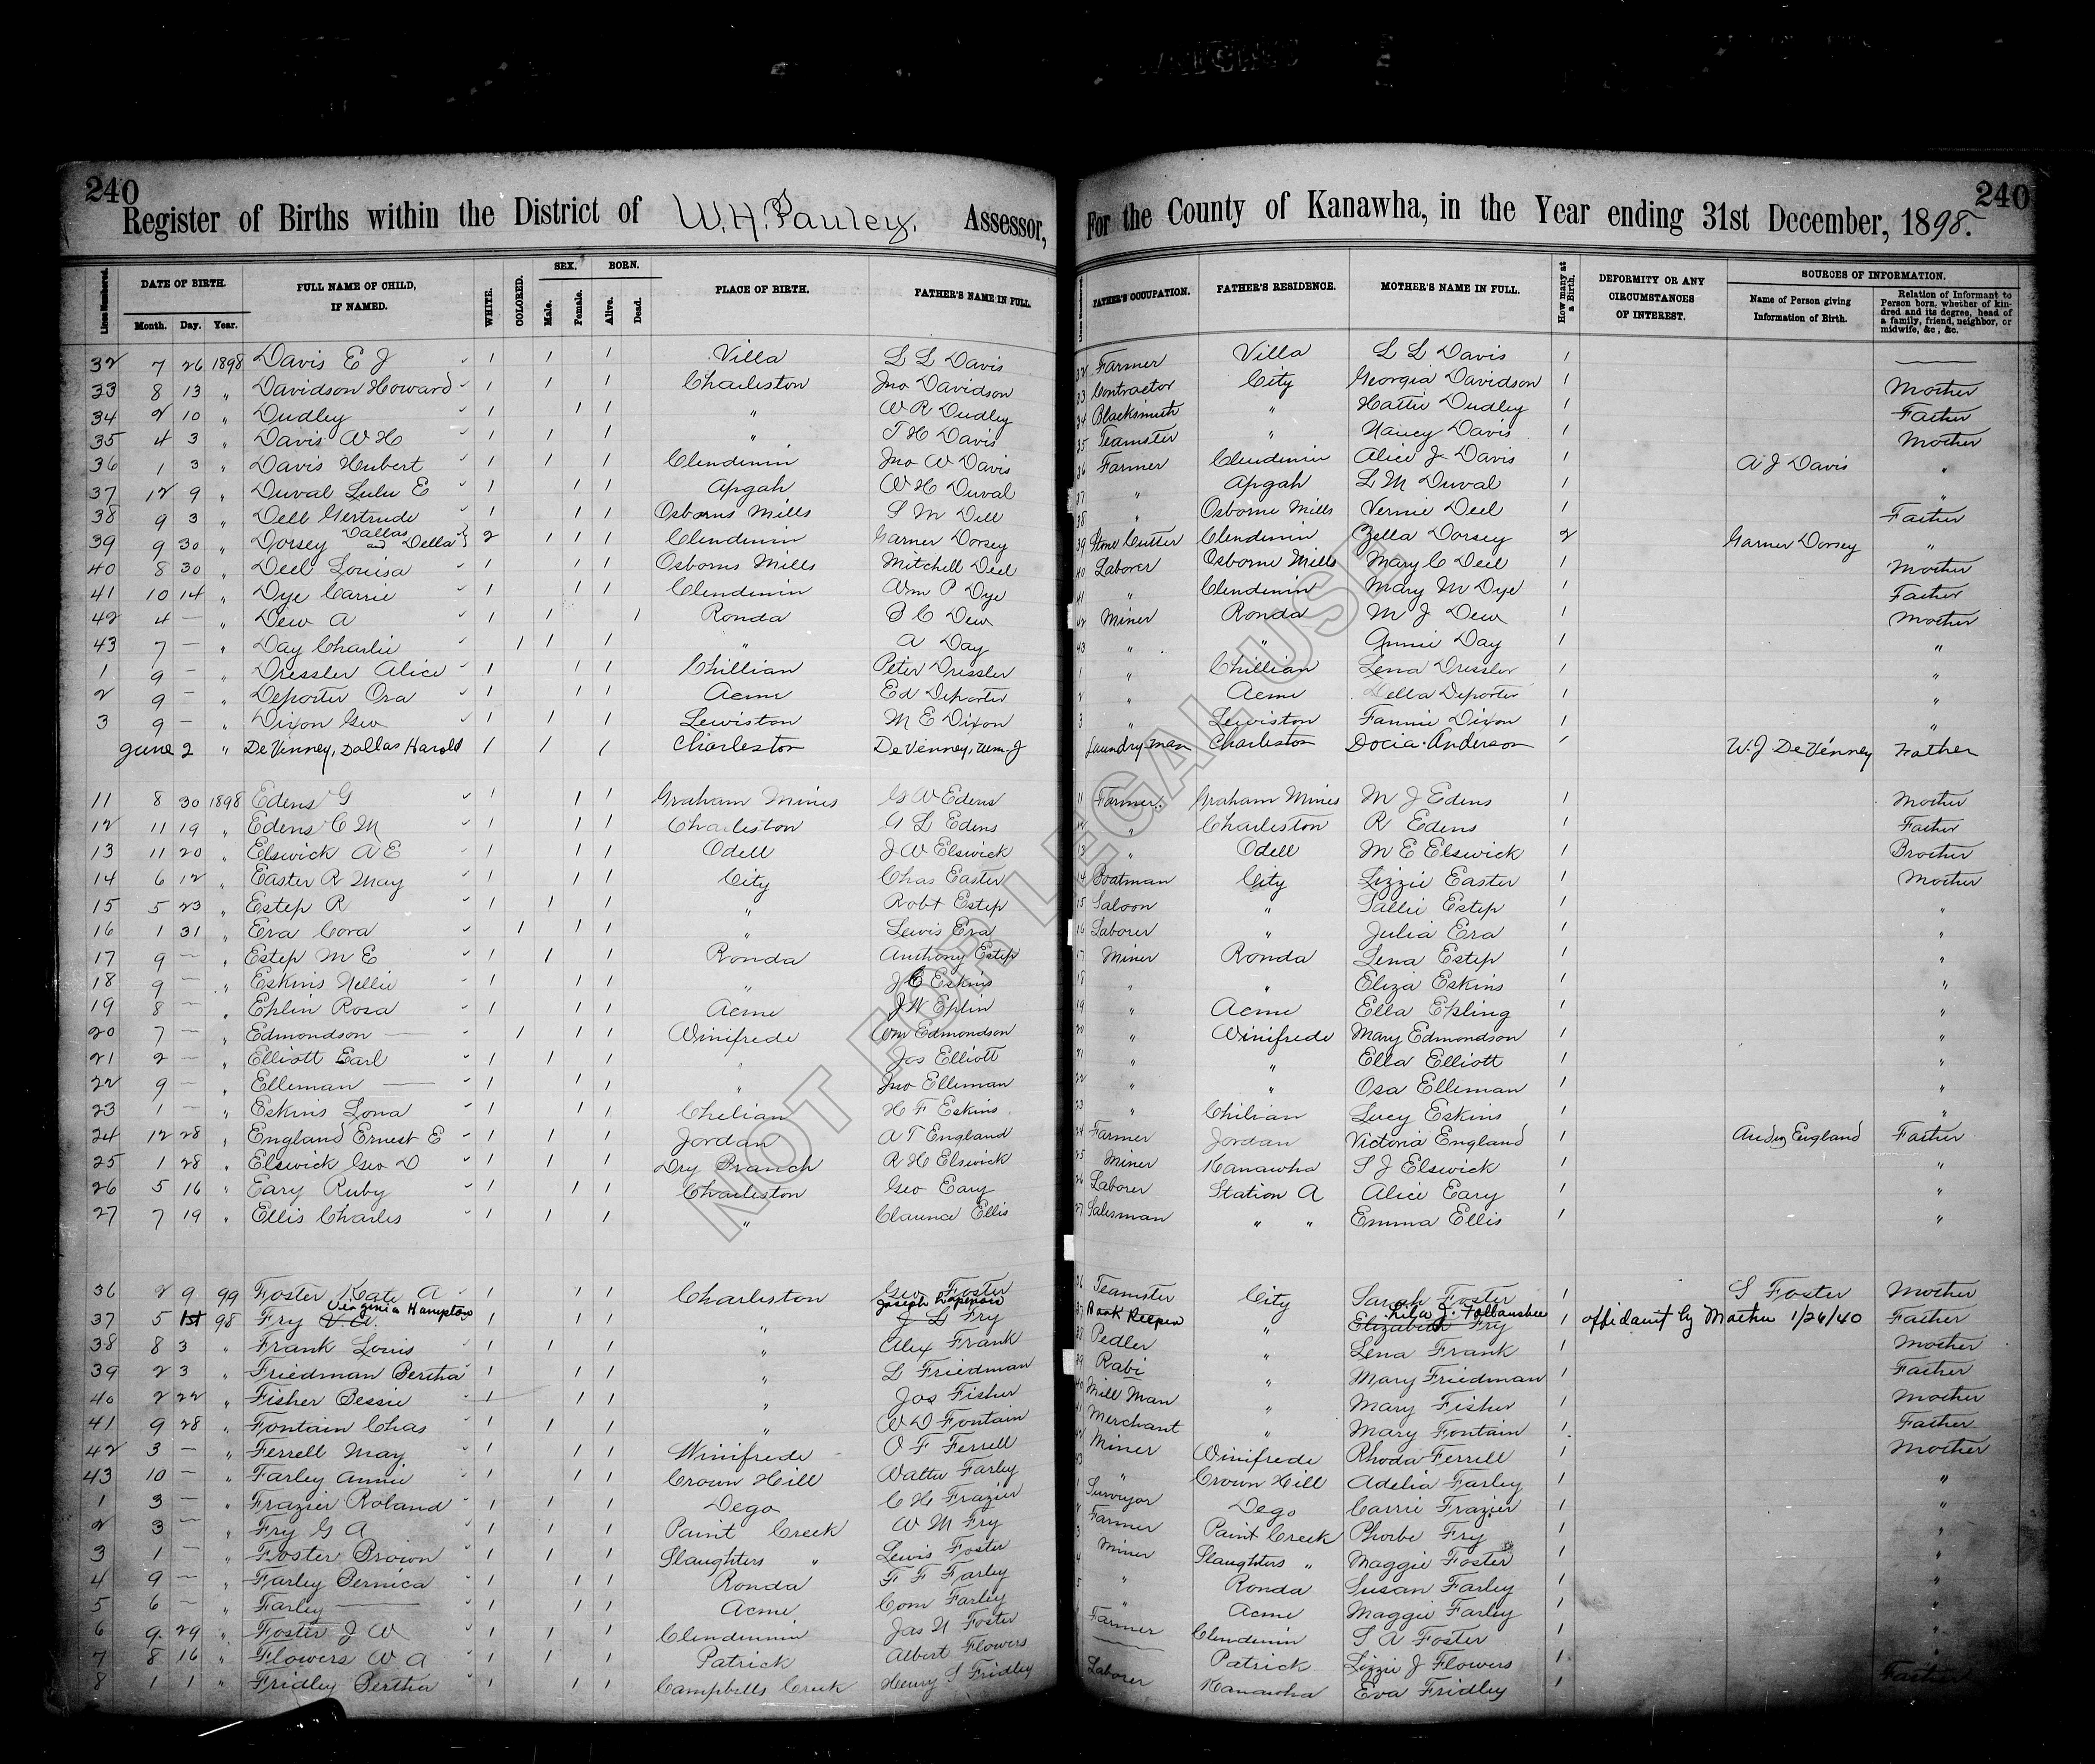 240
240
Register of Births within the District of W.H. Pauley. Assessor, For the County of Kanawha, in the Year ending 31st December, 1898.
Lines Numbered. DATE OF BIRTH. Month. Day. Year. FULL NAME OF CHILD, IF NAMED. WHITE. COLORED. SEX. Male. Female. BORN. Alive. Dead. PLACE OF BIRTH. FATHER'S NAME IN FULL. FATHER'S OCCUPATION. FATHER'S RESIDENCE. MOTHER'S NAME IN FULL. How many at a Birth. DEFORMITY OR ANY CIRCUMSTANCES OF INTEREST. SOURCES OF INFORMATION. Name of Person giving Information of Birth. Relation of Informant to Person born, whether of kindred and its degree, head of a family, friend, neighbor, or midwife, &c., &c.
32 7 26 1898 Davis E J 1 1 1 Villa L L Davis 32 Farmer Villa L L Davis 1 —
33 8 13 " Davidson Howard 1 1 1 Charleston Jno Davidson 33 Contractor City Georgia Davidson 1 Mother
34 2 10 " Dudley 1 1 1 " W R Dudley 34 Blacksmith " Hattie Dudley 1 Father
35 4 3 " Davis W H 1 1 1 " T H Davis 35 Teamster " Nancy Davis 1 Mother
36 1 3 " Davis Hubert 1 1 1 Clendenin Jno W Davis 36 Farmer Clendenin Alice J Davis 1 A J Davis "
37 12 9 " Duval Lulu E 1 1 1 Apgah W H Duval 37 " Apgah L M Duval 1 "
38 9 3 " Dell Gertrude 1 1 1 Osborns Mills S M Dell 38 " Osborne Mills Vernie Deel 1 Father
39 9 30 " Dorsey Dallas and Della } 2 1 1 1 Clendenin Garner Dorsey 39 Stone Cutter Clendenin Zella Dorsey 2 Garner Dorsey "
40 8 30 " Deel Louisa 1 1 1 Osborns Mills Mitchell Deel 40 Laborer Osborne Mills Mary C Deel 1 Mother
41 10 14 " Dye Carrie 1 1 1 Clendenin Wm P Dye 41 " Clendenin Mary M Dye 1 Father
42 4 — " Dew A 1 1 1 Ronda B C Dew 42 Miner Ronda M J Dew 1 Mother
43 7 — " Day Charlie 1 1 1 " A Day 43 " " Annie Day 1 "
1 9 — " Dressler Alice 1 1 1 Chillian Peter Dressler 1 " Chillian Lena Dressler 1 "
2 9 — " Deporter Ora 1 1 1 Acme Ed Deporter 2 " Acme Della Deporter 1 "
3 9 — " Dixon Geo 1 1 1 Lewiston M E Dixon 3 " Lewiston Fannie Dixon 1 "
June 2 " DeVinney, Dallas Harold 1 1 1 Charleston DeVenney, Wm. J Laundry-man Charleston Docia Anderson 1 W. J DeVenney Father
11 8 30 1898 Edens G 1 1 1 Graham Mines G W Edens 11 Farmer Graham Mines M J Edens 1 Mother
12 11 19 " Edens C M 1 1 1 Charleston A L Edens 12 " Charleston R Edens 1 Father
13 11 20 " Elswick A E 1 1 1 Odell J W Elswick 13 " Odell M E Elswick 1 Brother
14 6 12 " Easter R May 1 1 1 City Chas Easter 14 Boatman City Lizzie Easter 1 Mother
15 5 23 " Estep R 1 1 1 " Robt Estep 15 Saloon " Sallie Estep 1 "
16 1 31 " Era Cora 1 1 1 " Lewis Era 16 Laborer " Julia Era 1 "
17 9 — " Estep M E 1 1 1 Ronda Anthony Estep 17 Miner Ronda Lena Estep 1 "
18 9 — " Eskins Nellie 1 1 1 " J C Eskins 18 " " Eliza Eskins 1 "
19 8 — " Eplin Rosa 1 1 1 Acme J W Eplin 19 " Acme Ella Epling 1 "
20 7 — " Edmondson — 1 1 1 Winifrede Wm Edmondson 20 " Winifrede Mary Edmondson 1 "
21 2 — " Elliott Earl 1 1 1 " Jos Elliott 21 " " Ella Elliott 1 "
22 9 — " Elleman — 1 1 1 " Jno Elleman 22 " " Osa Elleman 1 "
23 1 — " Eskins Lona 1 1 1 Chelian H F Eskins 23 " Chilian Lucy Eskins 1 "
24 12 28 " England Ernest E 1 1 1 Jordan A T England 24 Farmer Jordan Victoria England 1 England Father
25 1 28 " Elswick Geo D 1 1 1 Dry Branch R H Elswick 25 Miner Kanawha S J Elswick 1 "
26 5 16 " Eary Ruby 1 1 1 Charleston Geo Eary 26 Laborer Station A Alice Eary 1 "
27 7 19 " Ellis Charles 1 1 1 " Clarence Ellis 27 Salesman " " Emma Ellis 1 "
36 2 9 99 Foster Kate A 1 1 1 Charleston Geo Foster 36 Teamster City Sarah Foster 1 S Foster Mother
37 5 1st 98 Fry V. A. Virginia Hampton 1 1 1 " J L Fry Joseph 37 Book Keeper " Elizabeth Fry Lila J. Follansbee 1 affidavit by Mother 1/26/40 Father
38 8 3 " Frank Louis 1 1 1 " Alex Frank 38 Pedler " Lena Frank 1 Mother
39 2 3 " Friedman Bertha 1 1 1 " L Friedman 39 Rabi " Mary Friedman 1 Father
40 2 22 " Fisher Bessie 1 1 1 " Jos Fisher 40 Mill Man " Mary Fisher 1 Mother
41 9 28 " Fontain Chas 1 1 1 " W D Fontain 41 Merchant " Mary Fontain 1 Father
42 3 — " Ferrell May 1 1 1 Winifrede O F Ferrell 42 Miner Winifrede Rhoda Ferrell 1 Mother
43 10 — " Farley Annie 1 1 1 Crown Hill Walter Farley 43 " Crown Hill Adelia Farley 1 "
1 3 — " Frazier Roland 1 1 1 Dego C H Frazier 1 Surveyor Dego Carrie Frazier 1 "
2 3 — " Fry G A 1 1 1 Paint Creek W M Fry 2 Farmer Paint Creek Phoebe Fry 1 "
3 1 — " Foster Brown 1 1 1 Slaughters " Lewis Foster 3 Miner Slaughters " Maggie Foster 1 "
4 9 — " Farley Bernica 1 1 1 Ronda F F Farley 4 " Ronda Susan Farley 1 "
5 6 — " Farley — 1 1 1 Acme Com Farley 5 " Acme Maggie Farley 1 "
6 9 29 " Foster J W 1 1 1 Clendennin Jas N Foster Farmer Clendenin S A Foster 1 "
7 8 16 " Flowers W A 1 1 1 Patrick Albert Flowers — Patrick Lizzie J Flowers 1 "
8 1 1 " Fridley Bertha 1 1 1 Campbells Creek Henry S Fridley Laborer Kanawha Eva Fridley 1 Father
NOT FOR LEGAL USE